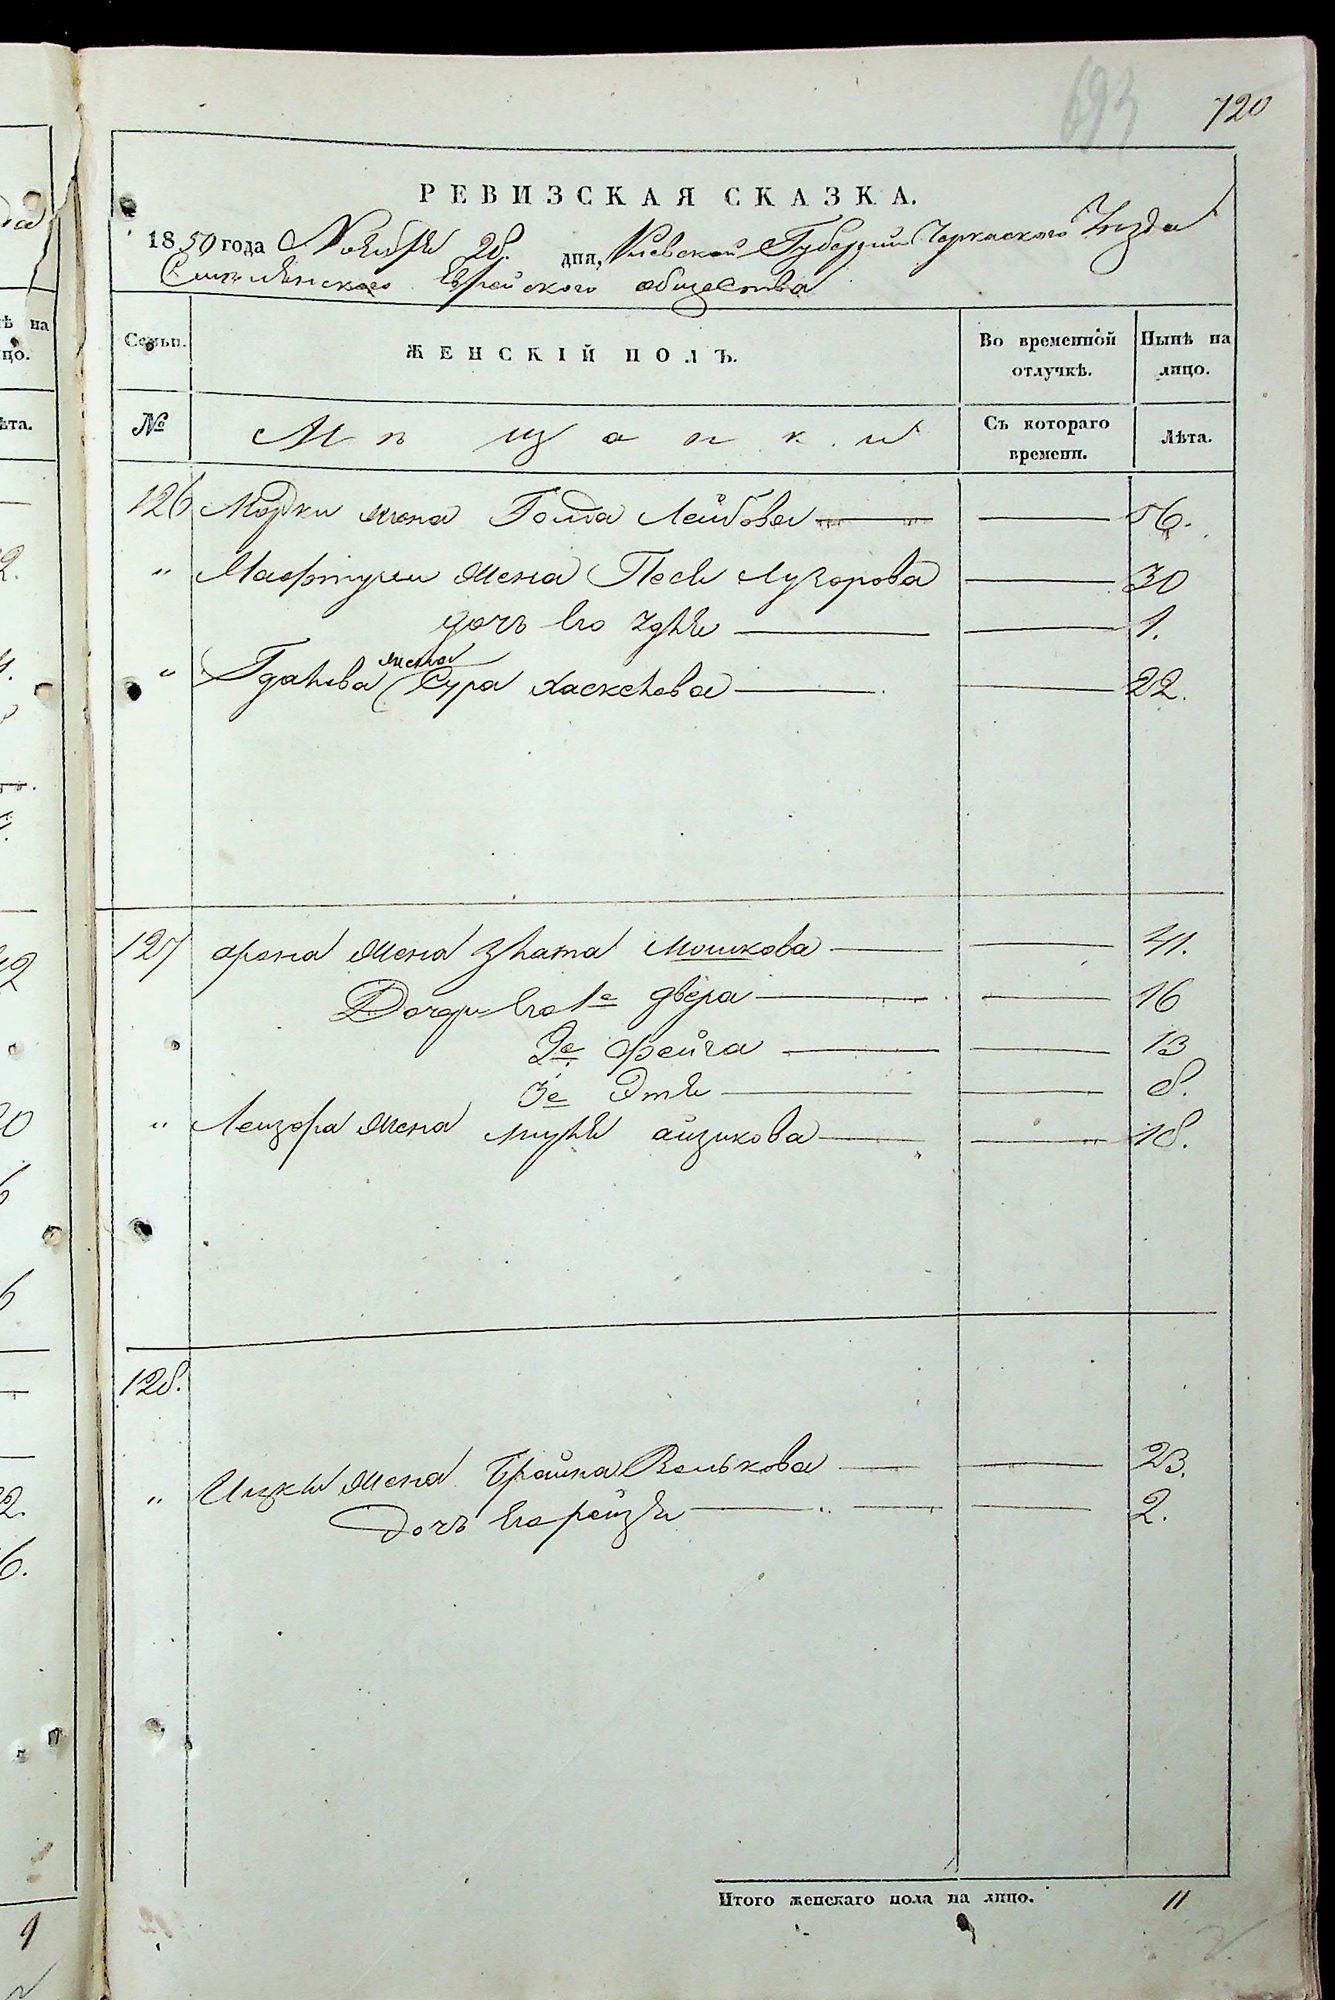 693
720
РЕВИЗСКАЯ СКАЗКА.
1850 года Ноября 28. дня, Киевской Губернии Черкаского Уезда
Смелянского Еврейского общества
Семьи. ЖЕНСКІЙ ПОЛЪ. Во временной отлучкѣ. Нынѣ на лицо.
№ Мещанки Съ котораго времени. Лѣта.
126 Мордки жена Голда Лейбова 56.
" жена Песя Лузорова 30
дочь его 1.
" жена Сура Хаскелова 22.
127 Арона жена Злата Мошкова 41.
Дочери его 1е Двера 16
2е Фейга 13
3е Этя 8.
" Лейзора жена айзикова 18.
128.
" Ицки жена Брайна Волькова 23.
Дочь его рейзя 2.
Итого женскаго пола на лицо. 11